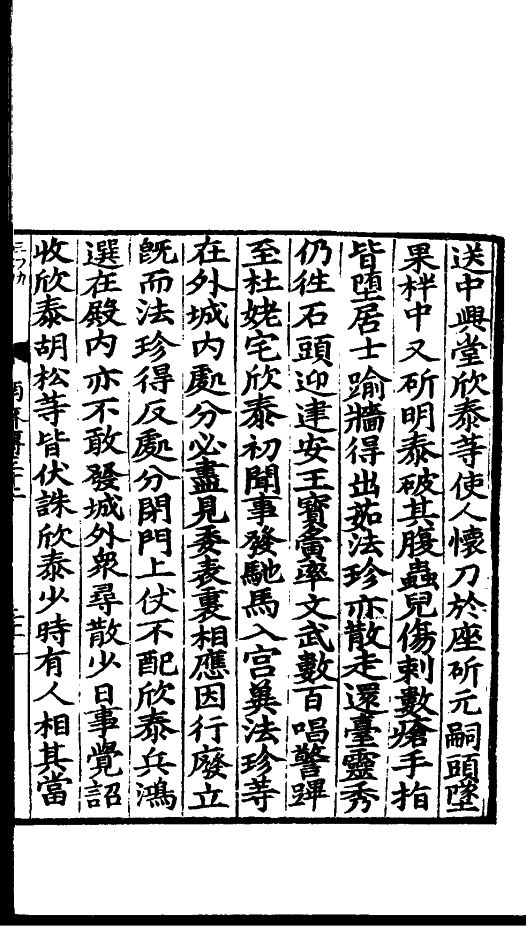 送中興堂欣泰等使人懷刀於座斫元嗣頭墜
果柈中又斫明泰破其腹蟲兒傷刺數瘡手指
皆墮居士踰牆得出茹法珍亦散走還臺靈秀
仍徃石頭迎建安王寳夤率文武數百唱警蹕
至杜姥宅欣泰初聞事發馳馬入宫兾法珍等
在外城内處分必盡見委表裏相應因行廢立
旣而法珍得反處分閉門上仗不配欣泰兵鴻
選在殿内亦不敢發城外衆尋散少日事覺詔
收欣泰胡松等皆伏誅欣泰少時有人相其當